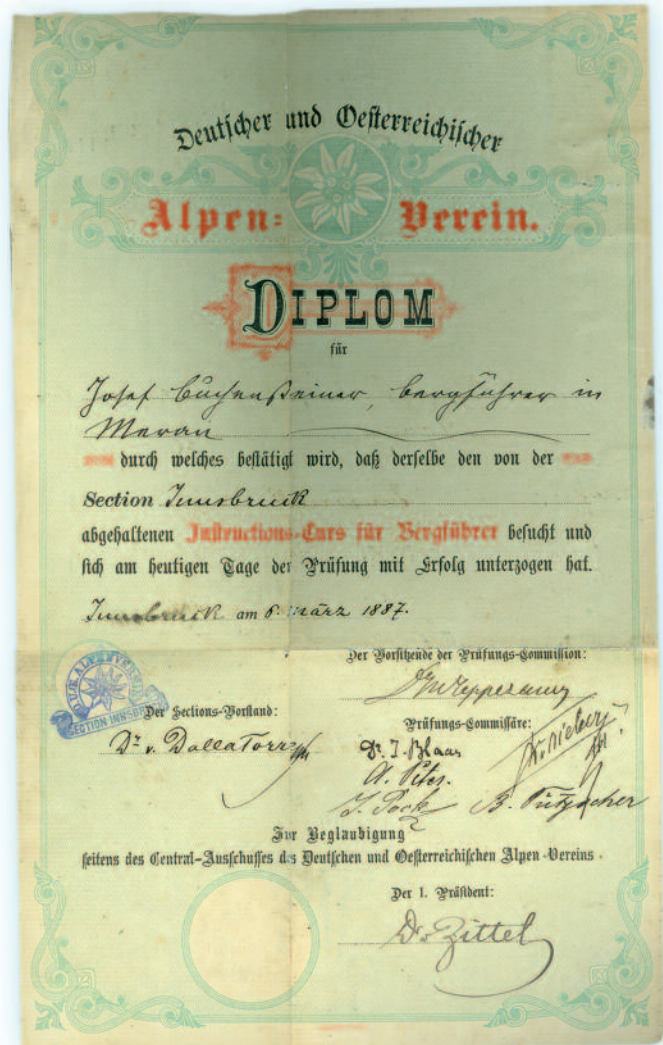 Deutscher und Oesterreichischer
Alpen-Verein.
DIPLOM
für
Josef Buchensteiner, Bergführer in
Meran
durch welches bestätigt wird, daß derselbe den von der
Section Innsbruck
abgehaltenen Instructions-Curs für Bergführer besucht und
sich am heutigen Tage der Prüfung mit Erfolg unterzogen hat.
Innsbruck am 6. März 1887.
Der Vorsitzende der Prüfungs-Commission:
SECTION INNSBR
Der Sections-Vorstand:
Dr. v. Dalla Torre
Prüfungs-Commissäre:
Dr. J. Blaas
A. Peter.
J. Pock
Zur Beglaubigung
seitens des Central-Ausschusses des Deutschen und Oesterreichischen Alpen-Vereins.
Der 1. Präsident:
Dr. Zittel